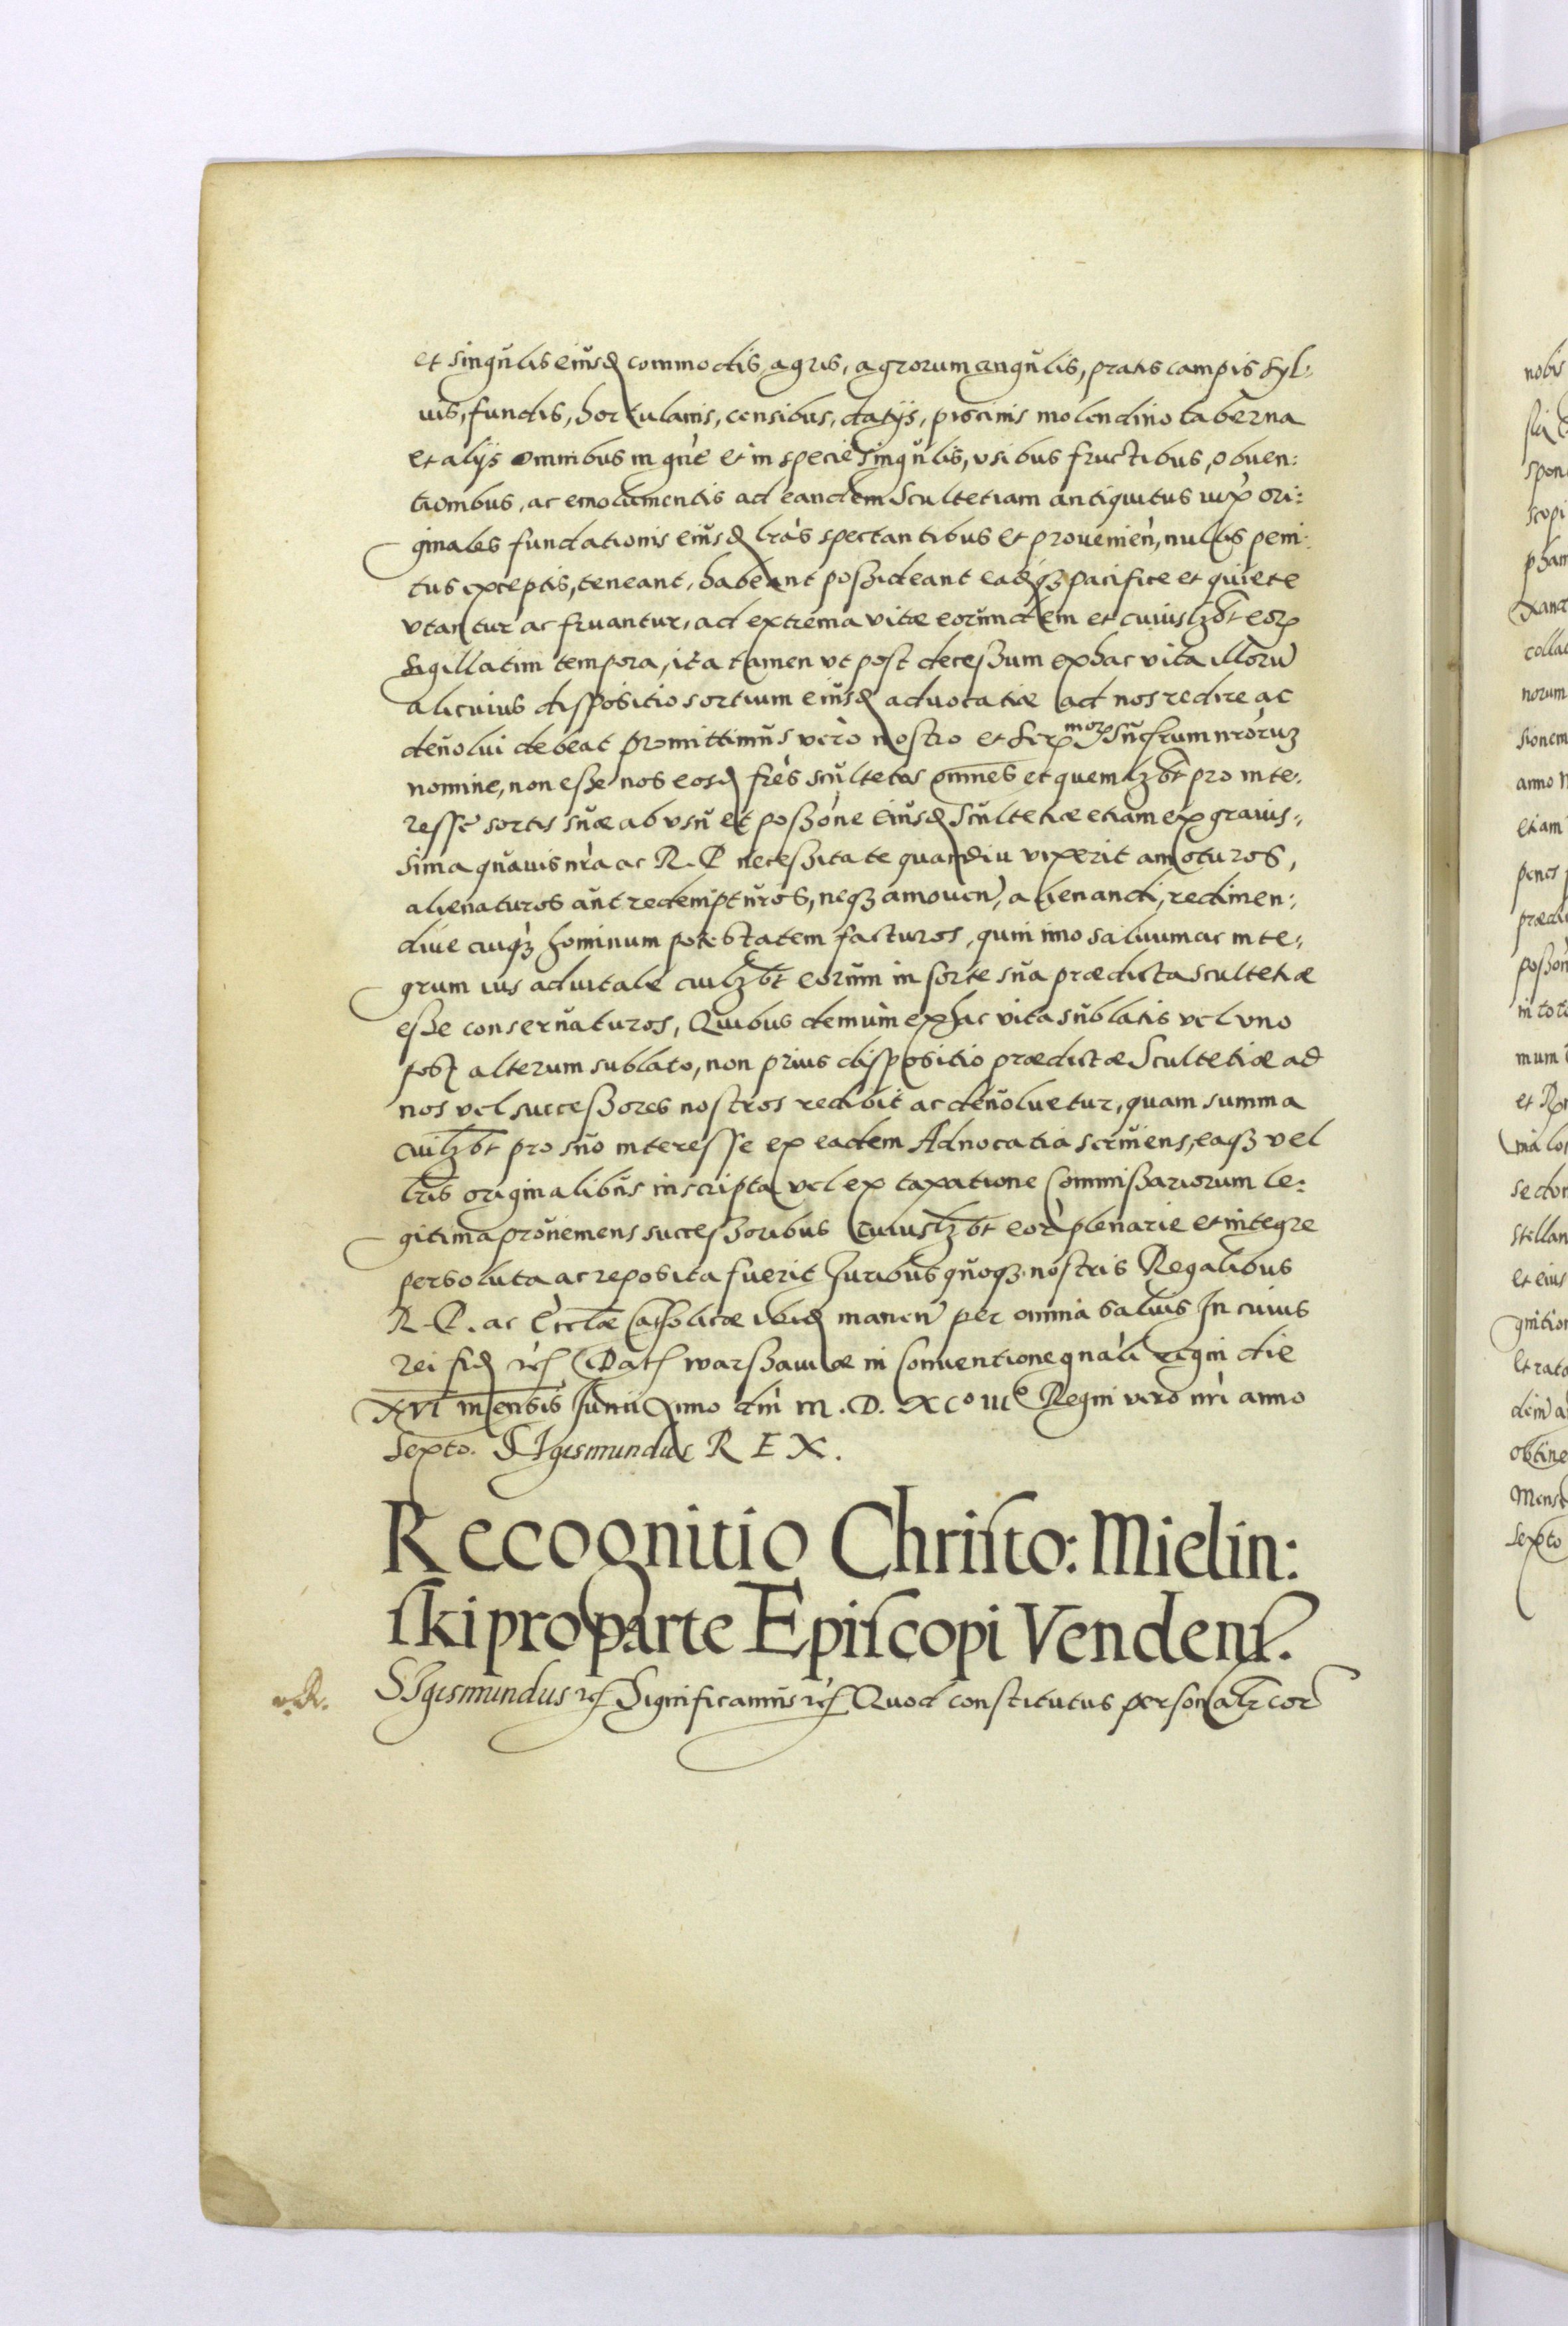 et singulis eiusd commodis agris, agrorum angulis, pratis campis syl:
uis, fundis, hortulanis, censibus, datijs, piscinis molendino taberna
et alijs omnibus in gñe et in specie singulis, vsibus fructibus, obuen:
tionibus, ac emolumentis ad eandem Scultetiam antiquitus iuxͣ ori:
ginales fundationis eiusd lrãs spectantibus et prouenieñ, nullis peni:
tus exceptis, teneant, habeant possideant eadqꝫ pacifice et quiete
vtantur ac fruantur, ad extrema vitæ eorundem et cuiuslꝫbt eorꝝ
sigillatim tempora, ita tamen vt post decessum ex hac vita illorũ
alicuius dispositio sortium eiusd aduocatiæ ad nos redire ac
deuolui debeat promittimus vero nostro et Serᵐᵒʳꝝ sucſrum nr̃oruꝫ
nomine, non esse nos eosd fres scultetos omnes et quemlꝫbt pro inte:
resse sortis suæ ab vsu et possõne eiusd Scultetiæ etiam ex grauis:
sima quauis nr̃a ac R. P. necessitate quamdiu vixerit amoturos,
alienaturos aut redempturos, neqꝫ amouen, alienandi, redimen:
diue cuiqꝫ hominum potestatem facturos, quin imo saluum ac inte:
grum ius aduitale cuilꝫbt eorum in sorte sua prædicta scultetiæ
esse conseruaturos, Quibus demum ex hac vita sublatis vel vno
post alterum sublato, non prius dispositio prædictæ Scultetiæ ad
nos vel successores nostros redibit ac deuoluetur, quam summa
cuilꝫbt pro suo interesse ex eadem Aduocatia seruiens, eaqꝫ vel
lris originalibus inscripta vel ex taxatione Commissariorum le:
gitima proueniens successoribus cuiuslꝫbt eor plenarie et integre
persoluta ac reposita fuerit Juribus quoqꝫ nostris Regalibus
R. P. ac Eccl̃æ Catholicæ ibid maneñ per omnia saluis In cuius
rei fid etc Dat Warssauiæ in Conuentione gnali regni die
XVI mensis Junii Anno dni M. D. XCº IIIº Regni vero nri anno
Sexto. Sigismundus R E X.
Recognitio Christo: Mielin:
ski pro parte Episcopi Vendens.
.R. Sigismundus etc Significamus etc Quod constitutus personalꝫ cor